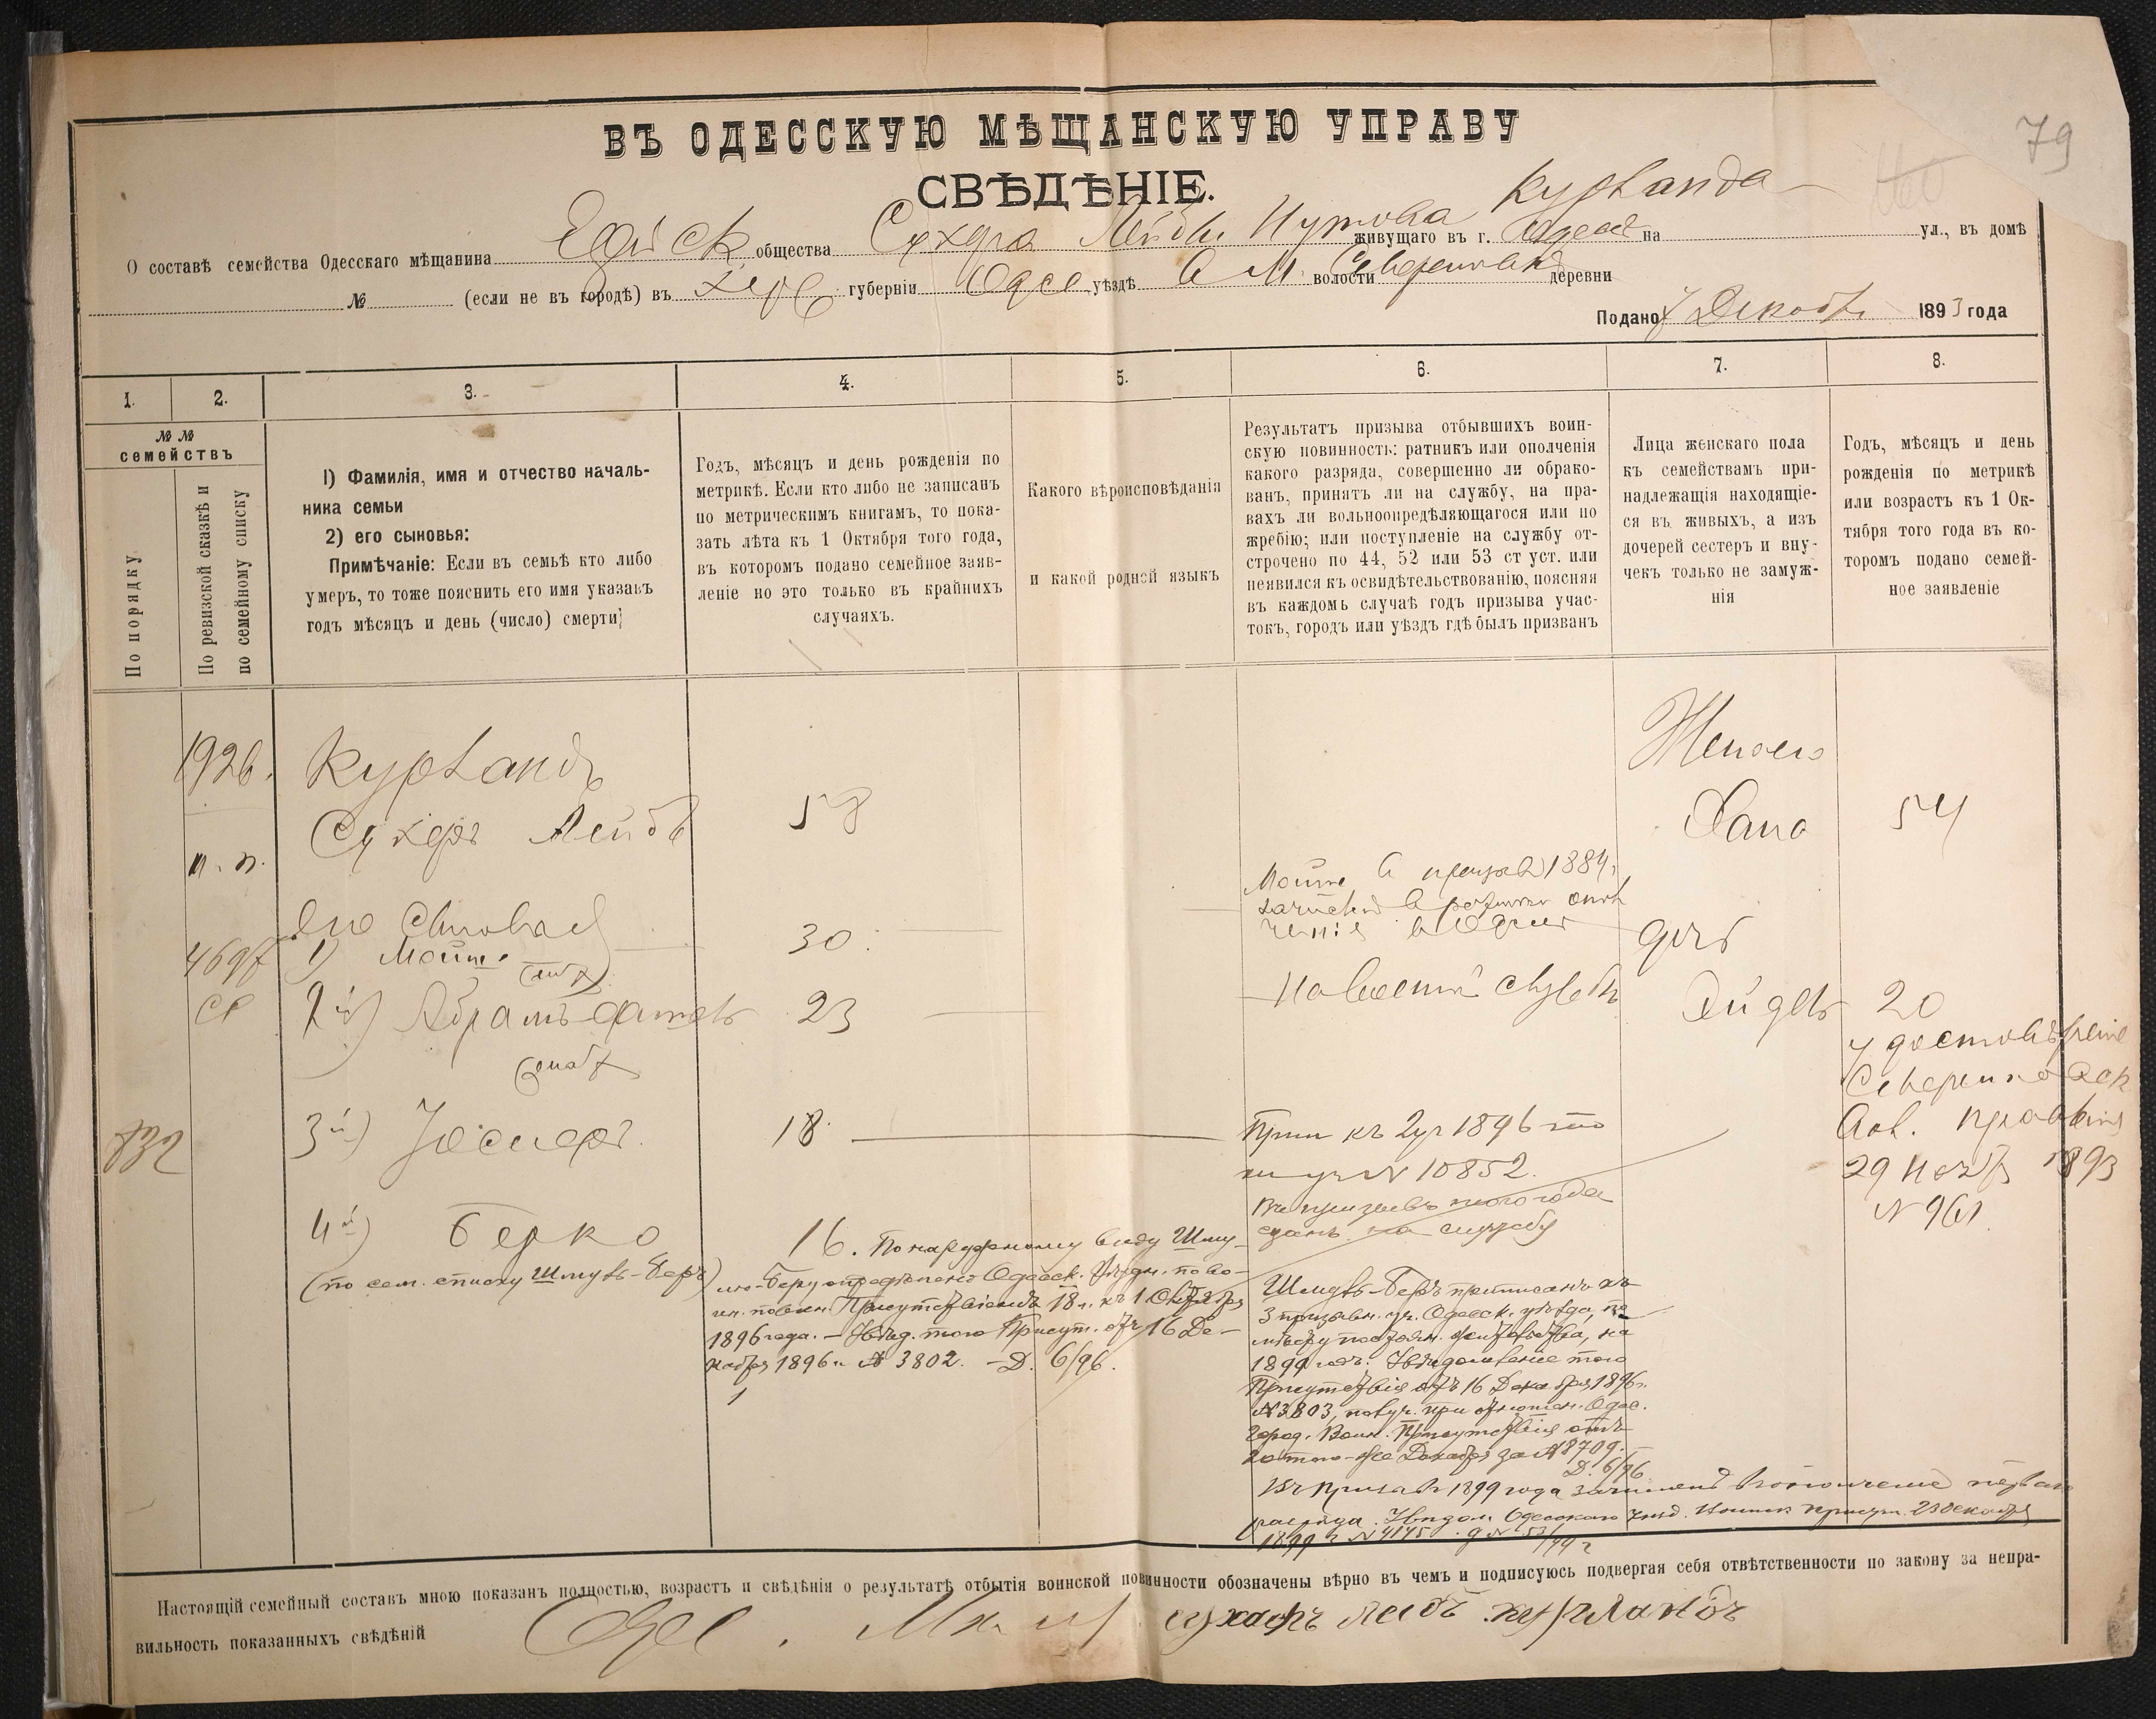 79
ВЪ ОДЕССКУЮ МѢЩАНСКУЮ УПРАВУ
СВѢДѢНІЕ.
О составѣ семейства Одесскаго мѣщанина общества Сухера Лейбы Курланда живущаго въ г. Одессѣ на ул., въ домѣ
№ (если не въ городѣ) въ Херс губерніи Одес уѣздѣ в М. волости Севериновкѣ деревни
Подано 7 Декабр 1893 года
1. 2. 3. 4. 5. 6. 7. 8.
№№ семействъ
По порядку
По ревизской сказкѣ и
по семейному списку
1) Фамилія, имя и отчество началь-
ника семьи
2) его сыновья:
Примѣчаніе: Если въ семьѣ кто либо
умеръ, то тоже пояснить его имя указавъ
годъ мѣсяцъ и день (число) смерти;
Годъ, мѣсяцъ и день рожденія по
метрикѣ. Если кто либо не записанъ
по метрическимъ книгамъ, то пока-
зать лѣта къ 1 Октября того года,
въ которомъ подано семейное заяв-
леніе но это только въ крайнихъ
случаяхъ.
Какого вѣроисповѣданія
и какой родной языкъ
Результатъ призыва отбывшихъ воин-
скую повинность: ратникъ или ополченія
какого разряда, совершенно ли обрако-
ванъ, принятъ ли на службу, на пра-
вахъ ли вольноопредѣляющагося или по
жребію; или поступленіе на службу от-
строчено по 44, 52 или 53 ст уст. или
неявился къ освидѣтельствованію, поясняя
въ каждомъ случаѣ годъ призыва учас-
токъ, городъ или уѣздъ гдѣ былъ призванъ
Лица женскаго пола
къ семействамъ при-
надлежащія находящіе-
ся въ живыхъ, а изъ
дочерей сестеръ и вну-
чекъ только не замуж-
нія
Годъ, мѣсяцъ и день
рожденія по метрикѣ
или возрастъ къ 1 Ок-
тября того года въ ко-
торомъ подано семей-
ное заявленіе
1926.
Курландъ
Сухеръ Лейбъ 58
Жена его
Хана 54
м. п.
Его сыновья
1) Мошко 30
Мошко в призыв 1884 г.
зачислен в ратники опол
ченія в Одессе
дочь
2й) Абрамъ 23
На военной службѣ
Эйдель 20
3й) Іосифъ. 18.
Прип къ 2 уч 1896 то
№ 10852.
Въ призывъ того года
сданъ на службу
Севериновск
29 Нояб 1893
№ 961
832
4й) Берко 16.
(по сем. списку Шмуль-Беръ)
По наружному виду Шму-
лю-Беру опредѣлено Одесск. Уѣздн. по во-
ин. повин. Присутствіемъ 18 л. къ 1 Октября
1896 года. – Увѣд. того Присут. отъ 16 Де-
кабря 1896 г. № 3802. – Д. 6/96.
Шмуль-Беръ приписанъ къ
3 призывн. уч. Одесск. уѣзда, по
мѣсту постоян. жительства, на
1899 годъ. Увѣдомленіе того
Присутствія отъ 16 Декабря 1896 г.
№ 3803, получ. при отношен. Одес.
Город. Воин. Присутствія отъ
20 того-же Декабря за № 8709.
Д. 6/96
Въ призывъ 1899 года зачисленъ въ ополченіе перваго
разряда. Увѣдом. Одесскаго Уѣзд. Воинск Присут. 23 Декабря
1899 г № 4145
Настоящій семейный составъ мною показанъ полностью, возрастъ и свѣдѣнія о результатѣ отбытія воинской повинности обозначены вѣрно въ чемъ и подписуюсь подвергая себя отвѣтственности по закону за непра-
вильность показанныхъ свѣдѣній
Одес. сухоръ леибъ курландъ